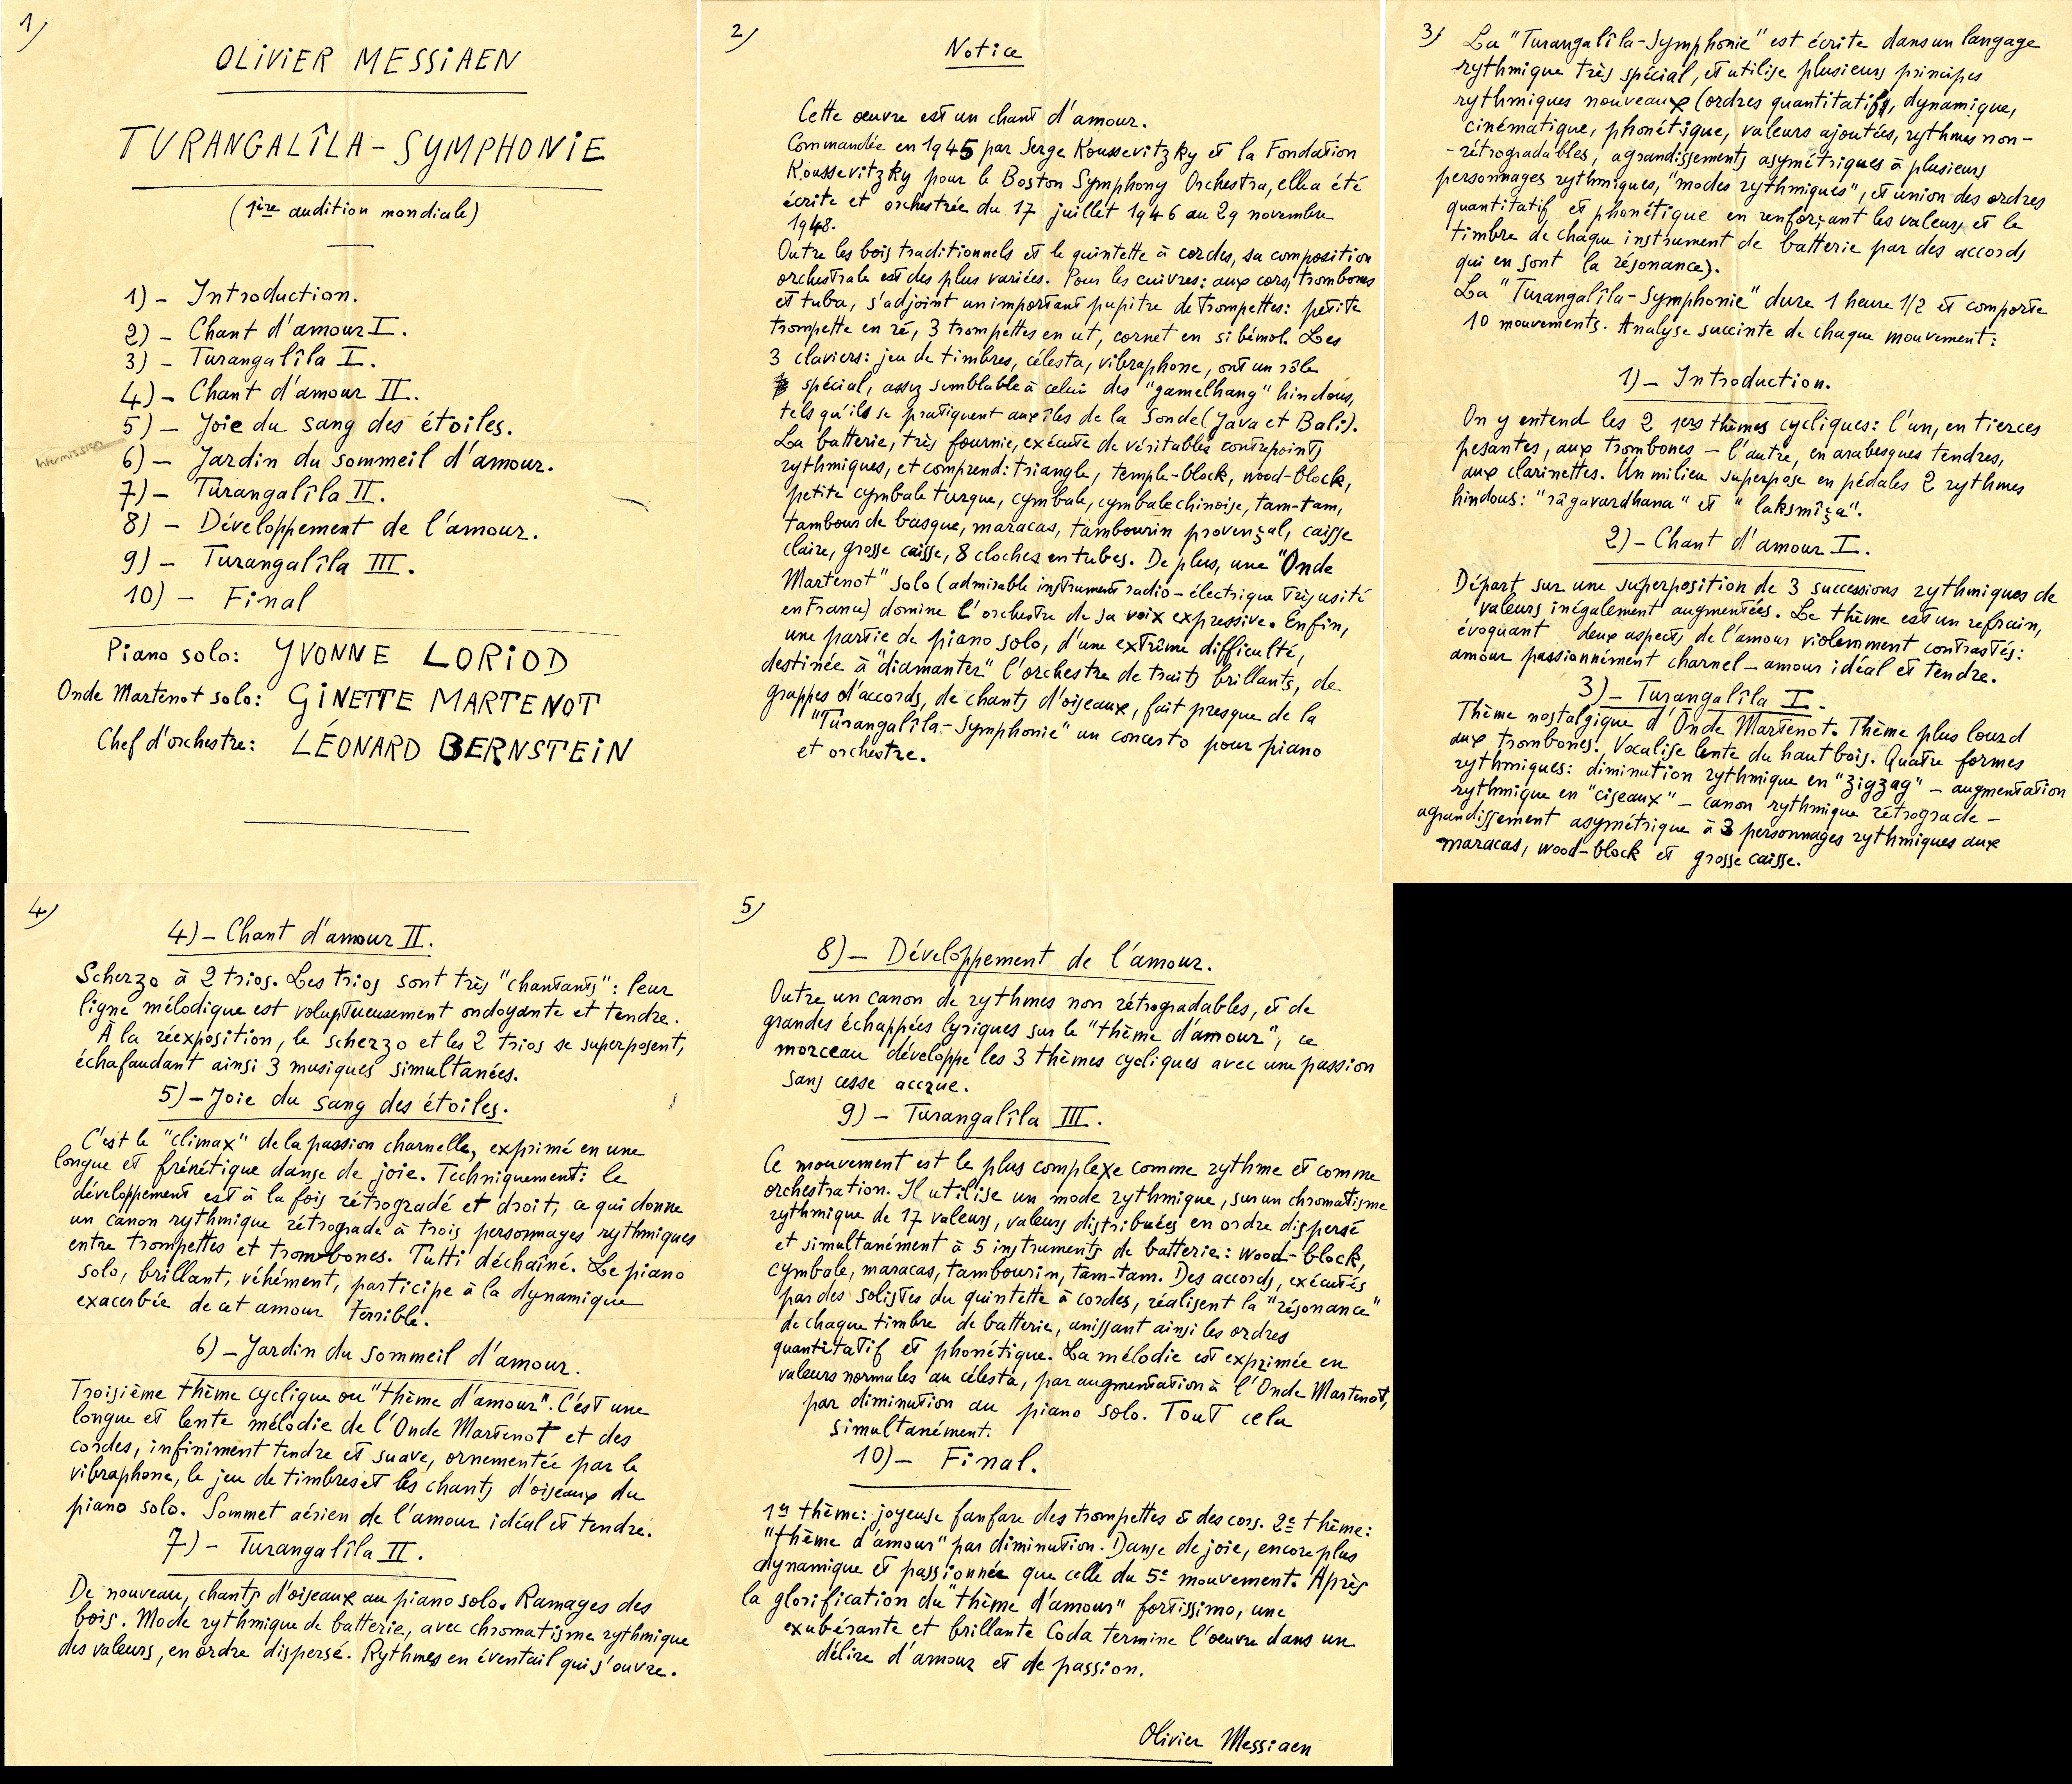 1)
OLIVIER MESSIAEN
TURANGALÎLA-SYMPHONIE
(1ère audition mondiale)
1) - Introduction.
2) - Chant d'amour I.
3) - Turangalîla I.
4) - Chant d'amour II.
5) - Joie du sang des étoiles.
Intermission
6) - Jardin du sommeil d'amour.
7) - Turangalîla II.
8) - Développement de l'amour.
9) - Turangalîla III.
10) - Final
Piano solo: YVONNE LORIOD
Onde Martenot solo: GINETTE MARTENOT
Chef d'orchestre: LÉONARD BERNSTEIN
2)
Notice
Cette œuvre est un chant d'amour.
Commandée en 1945 par Serge Koussevitzky et la Fondation
Koussevitzky pour le Boston Symphony Orchestra, elle a été
écrite et orchestrée du 17 juillet 1946 au 29 novembre
1948.
Outre les bois traditionnels et le quintette à cordes, sa composition
orchestrale est des plus variées. Pour les cuivres: aux cors, trombones
et tuba, s'adjoint un important pupitre de trompettes: petite
trompette en ré, 3 trompettes en ut, cornet en si bémol. Les
3 claviers: jeu de timbres, célesta, vibraphone, ont un rôle
spécial, assez semblable à celui des "gamelhang" hindous,
tels qu'ils se pratiquent aux îles de la Sonde (Java et Bali).
La batterie, très fournie, exécute de véritables contrepoints
rythmiques, et comprend: triangle, temple-block, wood-block,
petite cymbale turque, cymbale, cymbale chinoise, tam-tam,
tambour de basque, maracas, tambourin provençal, caisse
claire, grosse caisse, 8 cloches en tubes. De plus, une "Onde
Martenot" solo (admirable instrument radio-électrique très usité
en France) domine l'orchestre de sa voix expressive. Enfin,
une partie de piano solo, d'une extrême difficulté,
destinée à "diamanter" l'orchestre de traits brillants, de
grappes d'accords, de chants d'oiseaux, fait presque de la
"Turangalîla-Symphonie" un concerto pour piano
et orchestre.
3)
La "Turangalîla-Symphonie" est écrite dans un langage
rythmique très spécial, et utilise plusieurs principes
rythmiques nouveaux (ordres quantitatifs, dynamique,
cinématique, phonétique, valeurs ajoutées, rythmes non-
-rétrogradables, agrandissements asymétriques à plusieurs
personnages rythmiques, "modes rythmiques", et union des ordres
quantitatif et phonétique en renforçant les valeurs et le
timbre de chaque instrument de batterie par des accords
qui en sont la résonance).
La "Turangalîla-Symphonie" dure 1 heure 1/2 et comporte
10 mouvements. Analyse succinte de chaque mouvement:
1) - Introduction.
On y entend les 2 1ers thèmes cycliques: l'un, en tierces
pesantes, aux trombones - l'autre, en arabesques tendres,
aux clarinettes. Un milieu superpose en pédales 2 rythmes
hindous: "râgavardhana" et "lakskmîça".
2) - Chant d'amour I.
Départ sur une superposition de 3 successions rythmiques de
valeurs inégalement augmentées. Le thème est un refrain,
évoquant deux aspects de l'amour violemment contrastés:
amour passionnément charnel - amour idéal et tendre.
3) - Turangalîla I.
Thème nostalgique d'Onde Martenot. Thème plus lourd
aux trombones. Vocalise lente du hautbois. Quatre formes
rythmiques: diminution rythmique en "zigzag" - augmentation
rythmique en "ciseaux" - canon rythmique rétrograde -
agrandissement asymétrique à 3 personnages rythmiques aux
maracas, wood-block et grosse caisse.
4)
4) - Chant d'amour II.
Scherzo à 2 trios. Les trios sont très "chantants": leur
ligne mélodique est voluptueusement ondoyante et tendre.
À la réexposition, le scherzo et les 2 trios se superposent,
échafaudant ainsi 3 musiques simultanées.
5) - Joie du sang des étoiles.
C'est le "climax" de la passion charnelle, exprimé en une
longue et frénétique danse de joie. Techniquement: le
développement est à la fois rétrogradé et droit, ce qui donne
un canon rythmique rétrograde à trois personnages rythmiques
entre trompettes et trombones. Tutti déchaîné. Le piano
solo, brillant, véhément, participe à la dynamique
exacerbée de cet amour terrible.
6) - Jardin du sommeil d'amour.
Troisième thème cyclique ou "thème d'amour". C'est une
longue et lente mélodie de l'Onde Martenot et des
cordes, infiniment tendre et suave, ornementée par le
vibraphone, le jeu de timbres et les chants d'oiseaux du
piano solo. Sommet aérien de l'amour idéal et tendre.
7) - Turangalîla II.
De nouveau, chants d'oiseaux au piano solo. Ramages des
bois. Mode rythmique de batterie, avec chromatisme rythmique
des valeurs, en ordre dispersé. Rythmes en éventail qui s'ouvre.
5)
8) - Développement de l'amour.
Outre un canon de rythmes non rétrogradables, et de
grandes échappées lyriques sur le "thème d'amour", ce
morceau développe les 3 thèmes cycliques avec une passion
sans cesse accrue.
9) - Turangalîla III.
Ce mouvement est le plus complexe comme rythme et comme
orchestration. Il utilise un mode rythmique, sur un chromatisme
rythmique de 17 valeurs, valeurs distribuées en ordre dispersé
et simultanément à 5 instruments de batterie: wood-block,
cymbale, maracas, tambourin, tam-tam. Des accords, exécutés
par des solistes du quintette à cordes, réalisent la "résonance"
de chaque timbre de batterie, unissant ainsi les ordres
quantitatif et phonétique. La mélodie est exprimée en
valeurs normales au célesta, par augmentation à l'Onde Martenot,
par diminution au piano solo. Tout cela
simultanément.
10) - Final.
1er thème: joyeuse fanfare des trompettes et des cors. 2e thème:
"thème d'amour" par diminution. Danse de joie, encore plus
dynamique et passionnée que celle du 5e mouvement. Après
la glorification du "thème d'amour" fortissimo, une
exubérante et brillante Coda termine l'œuvre dans un
délire d'amour et de passion.
Olivier Messiaen